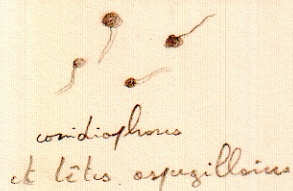 conidiophores
et têtes aspergillaires